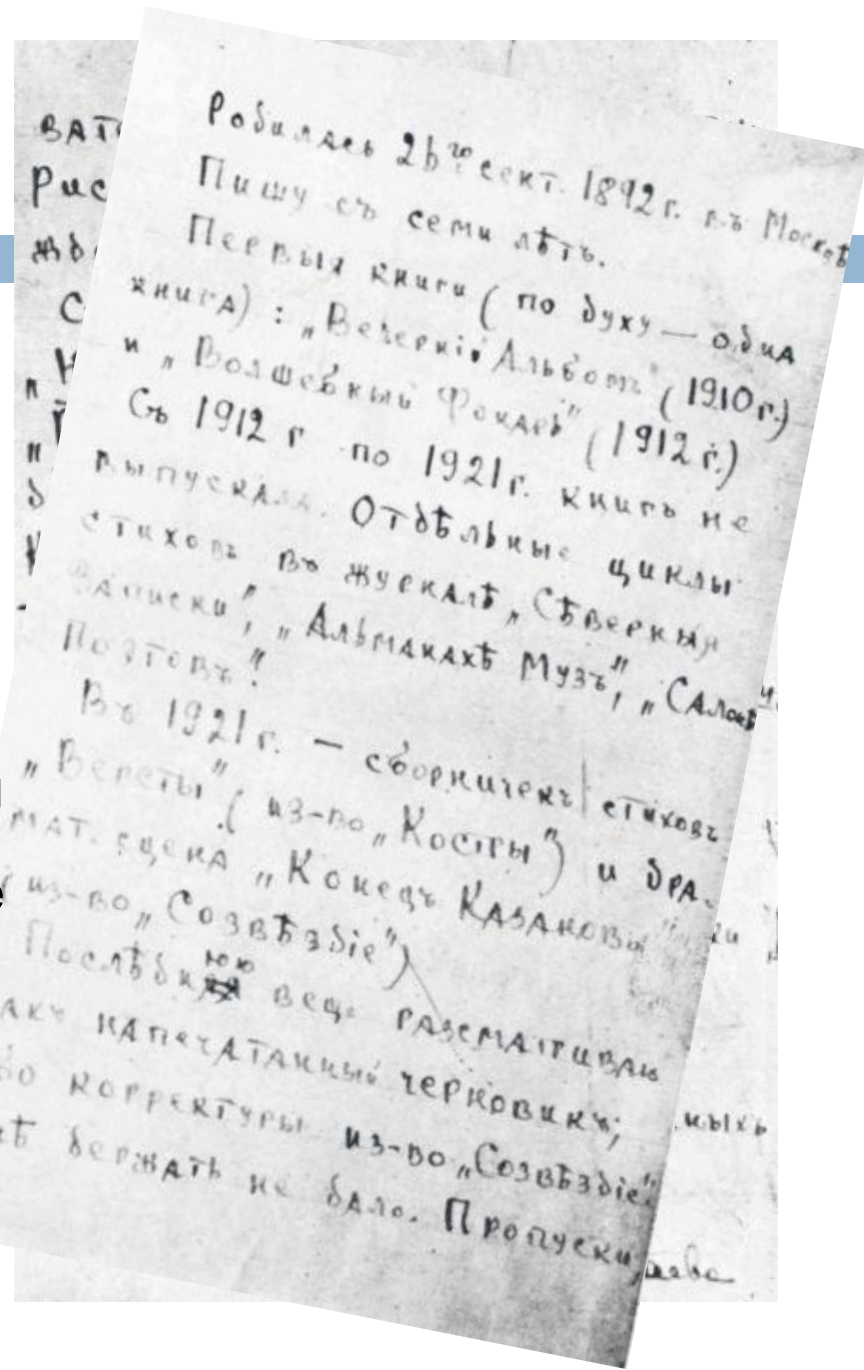 Родилась 26го сент. 1892 г. въ Москвѣ
Пишу съ семи лѣтъ.
Первыя книги (по духу — одна
книга) : „Вечернiй Альбомъ" (1910 г.)
и „Волшебный Фонарь" (1912 г.)
Съ 1912 г по 1921 г. книгъ не
выпускала. Отдѣльные циклы
стиховъ въ журналѣ „Сѣверныя
Записки", „Альманахѣ Музъ", „Салонѣ
Поэтовъ".
Въ 1921 г. — сборничекъ стиховъ
„Версты" (из-во „Костры") и дра-
мат. сцена „Конецъ Казановы"
(из-во „Созвѣздiе")
Послѣднюю вещь разсматриваю
акъ напечатанный черновикъ;
бо корректуры из-во „Созвѣздiе"
нѣ держать не дало. Пропуски,
ват
Рис
жде
С
ныхъ
аева